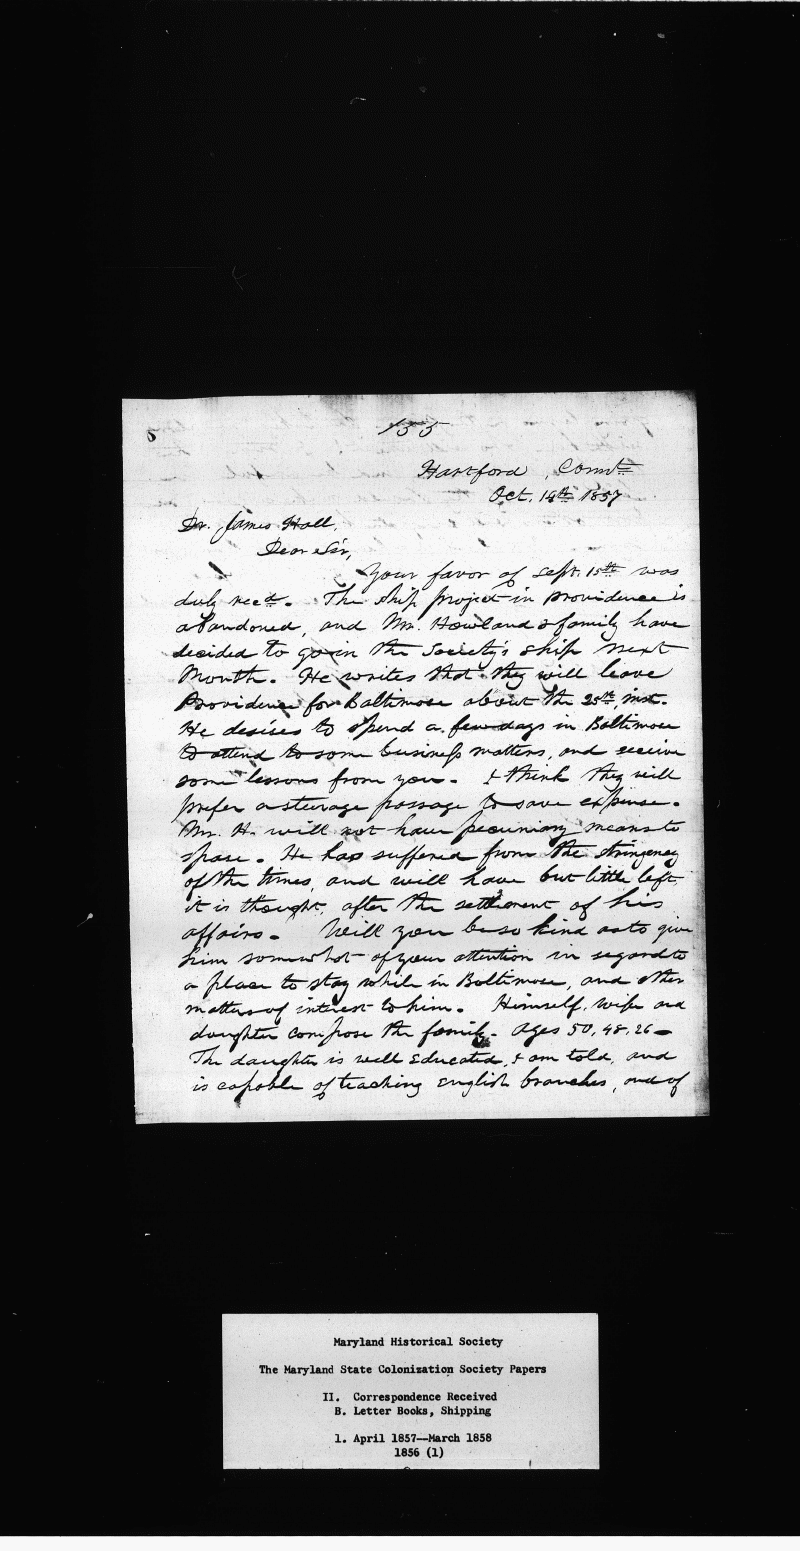 155
Hartford, Connt
Oct. 14th 1857
Dr. James Hall,
Dear Sir,
Your favor of Sept. 15th was
duly recd. The ship project in Providence is
abandoned, and Mr. Howland & family have
decided to go in the Society's ship next
Month. He writes that they will leave
Providence for Baltimore about the 25th inst.
He desires to spend a few days in Baltimore
to attend to some business matters, and receive
some lessons from you. I think they will
prefer a steerage passage to save expense.
Mr. H. will not have pecuniary means to
spare. He has suffered from the stringency
of the times, and will have but little left,
it is thought, after the settlement of his
affairs. Will you be so kind as to give
him somewhat of your attention in regard to
a place to stay while in Baltimore, and other
matters of interest to him. Himself, wife and
daughter compose the family. Ages 50, 48, 26
The daughter is well educated, I am told, and
is capable of teaching English branches, and of
Maryland Historical Society
The Maryland State Colonization Society Papers
II. Correspondence Received
B. Letter Books, Shipping
1. April 1857--March 1858
1856 (1)